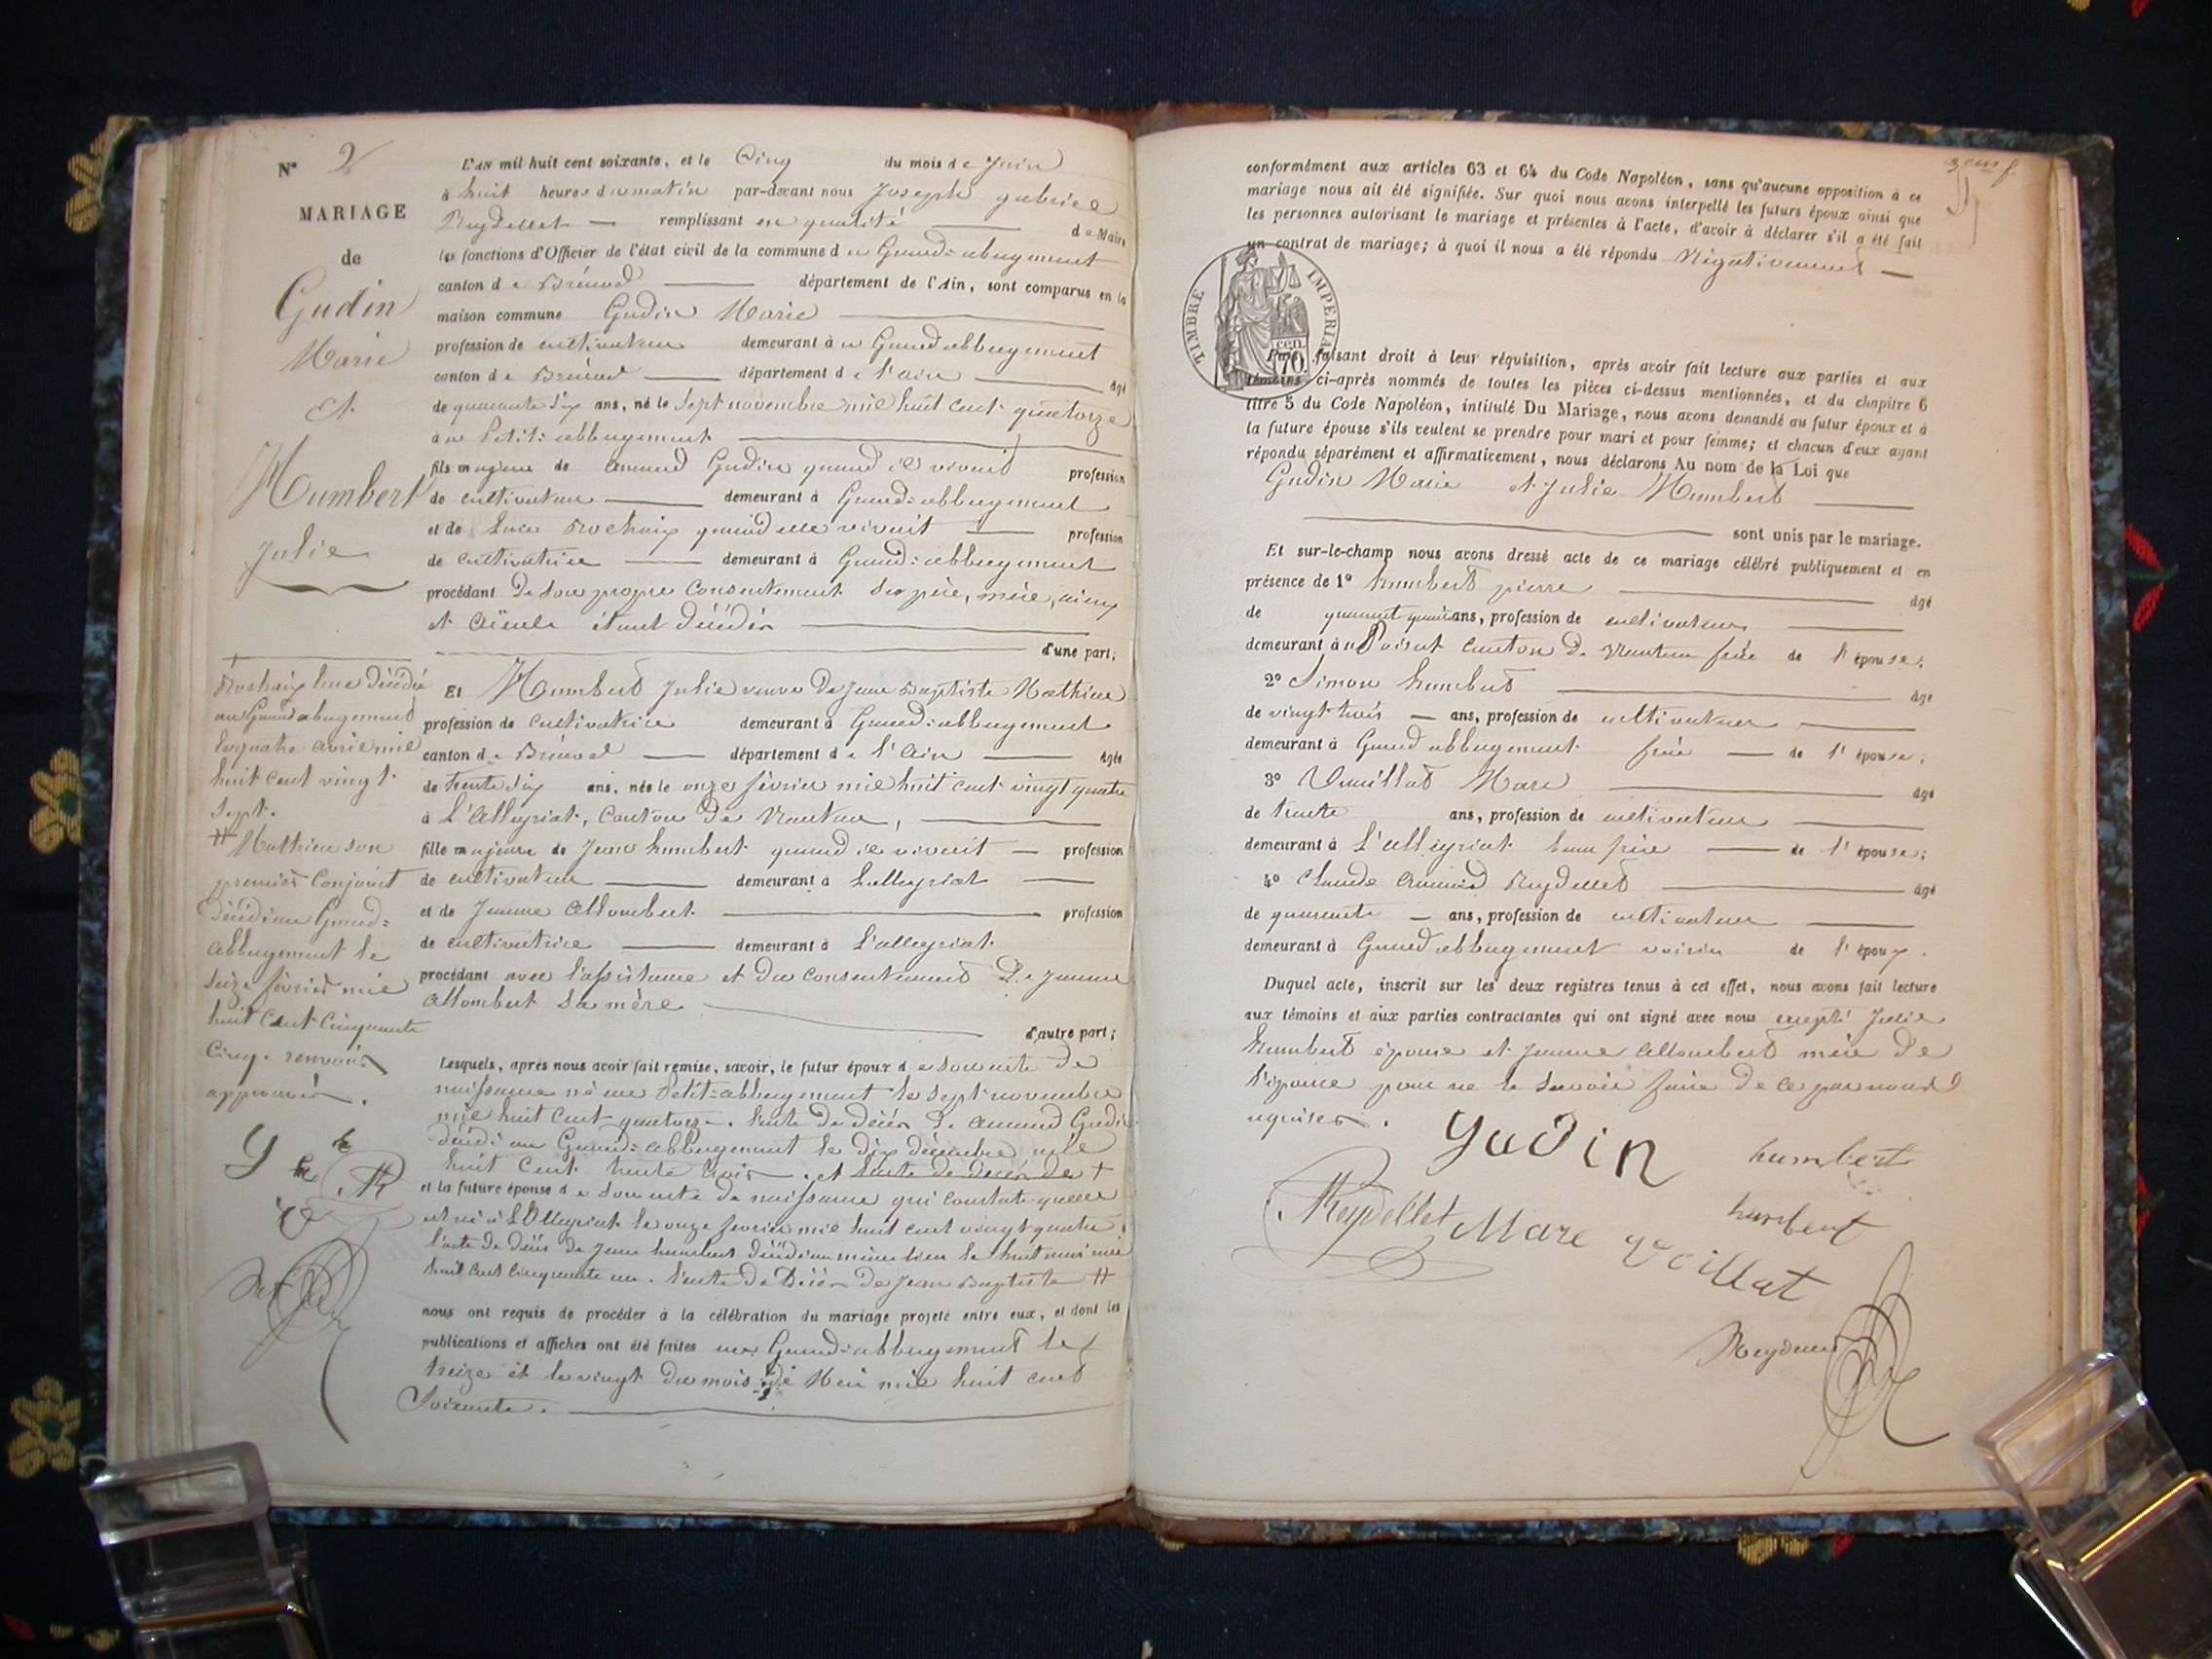 N° 2
MARIAGE
de
Gudin
Marie
et
Humbert
Julie
L'an mil huit cent soixante, et le Cinq du mois de Juin
à huit heures du matin par-devant nous Joseph gabriel
Reydellet remplissant en qualité de Maire
les fonctions d'Officier de l'état civil de la commune du Grand-abbergement
canton de Brénod département de l'Ain, sont comparus en la
maison commune Gudin Marie
profession de cultivateur demeurant à u Grand abbergement
canton de Brénod département de l'ain âgé
de quarante six ans, né le sept novembre mil huit cent quatorze
à u Petit-abbergement
fils majeur de amand Gudin quand il vivait profession
de cultivateur demeurant à Grand-abbergement
et de Luce Rochaix quand elle vivait profession
de cultivatrice demeurant à Grand-abbergement
procédant de son propre consentement ses père, mère, aieux
et aïeule étant décédés
d'une part;
Et Humbert Julie veuve de Jean Baptiste Mathieu
profession de cultivatrice demeurant à Grand-abbergement
canton de Brénod département de l'ain âgée
de trente six ans, née le onze février mil huit cent vingt quatre
à L'alleyriat, canton de Nantua,
fille majeure de Jean humbert quand il vivait profession
de cultivateur demeurant à Lalleyriat
et de Jeanne Allombert profession
de cultivatrice demeurant à L'alleyriat
procédant avec l'assistance et du consentement de Jeanne
allombert sa mère
d'autre part;
Lesquels, après nous avoir fait remise, savoir, le futur époux de son acte de
naissance né au Petit-abbergement le sept novembre
mil huit cent quatorze. l'acte de décès de amand Gudin
décédé au Grand-abbergement le dix décembre mil
huit cent trente trois. et l'acte de décès de +
et la future épouse de son acte de naissance qui constate quelle
est née à L'Alleyriat le onze février mil huit cent vingt quatre,
l'acte de décès de Jean humbert décédé au même lieu le huit mai mil
huit cent cinquante un. l'acte de Décès de Jean Baptiste #
nous ont requis de procéder à la célébration du mariage projeté entre eux, et dont les
publications et affiches ont été faites au Grand-abbergement le
treize et le vingt du mois de Mai mil huit cent
soixante.
+
Rochaix luce décédée
au Grand abbergement
le quatre avril mil
huit cent vingt
sept.
# Mathieu son
premier conjoint
décédé au Grand-
abbergement le
seize février mil
huit cent cinquante
cinq. renvois
approuvés.
conformément aux articles 63 et 64 du Code Napoléon, sans qu'aucune opposition à ce
mariage nous ait été signifiée. Sur quoi nous avons interpellé les futurs époux ainsi que
les personnes autorisant le mariage et présentes à l'acte, d'avoir à déclarer s'il a été fait
un contrat de mariage; à quoi il nous a été répondu Négativement
TIMBRE IMPERIAL
cen.
70.
Puis, faisant droit à leur réquisition, après avoir fait lecture aux parties et aux
témoins ci-après nommés de toutes les pièces ci-dessus mentionnées, et du chapitre 6
titre 5 du Code Napoléon, intitulé Du Mariage, nous avons demandé au futur époux et à
la future épouse s'ils veulent se prendre pour mari et pour femme; et chacun d'eux ayant
répondu séparément et affirmativement, nous déclarons Au nom de la Loi que
Gudin Marie et Julie Humbert
sont unis par le mariage.
Et sur-le-champ nous avons dressé acte de ce mariage célébré publiquement et en
présence de 1° humbert pierre âgé
de ans, profession de cultivateur
demeurant à u Poizat canton de Nantua frère de l'épouse.
2° Simon humbert âgé
de vingt trois ans, profession de cultivateur
demeurant à Grand abbergement frère de l'épouse;
3° Vuaillat Marc âgé
de trente ans, profession de cultivateur
demeurant à L'alleyriat beau frère de l'épouse;
4° Claude amand Reydellet âgé
de quarante ans, profession de cultivateur
demeurant à Grand abbergement voisin de l'époux.
Duquel acte, inscrit sur les deux registres tenus à cet effet, nous avons fait lecture
aux témoins et aux parties contractantes qui ont signé avec nous excepté Julie
humbert épouse et Jeanne allombert mère de
l'épouse pour ne le savoir faire de ce par nous
requises.
gudin humbert
Reydellet Marc humbert
voillat
Reydellet